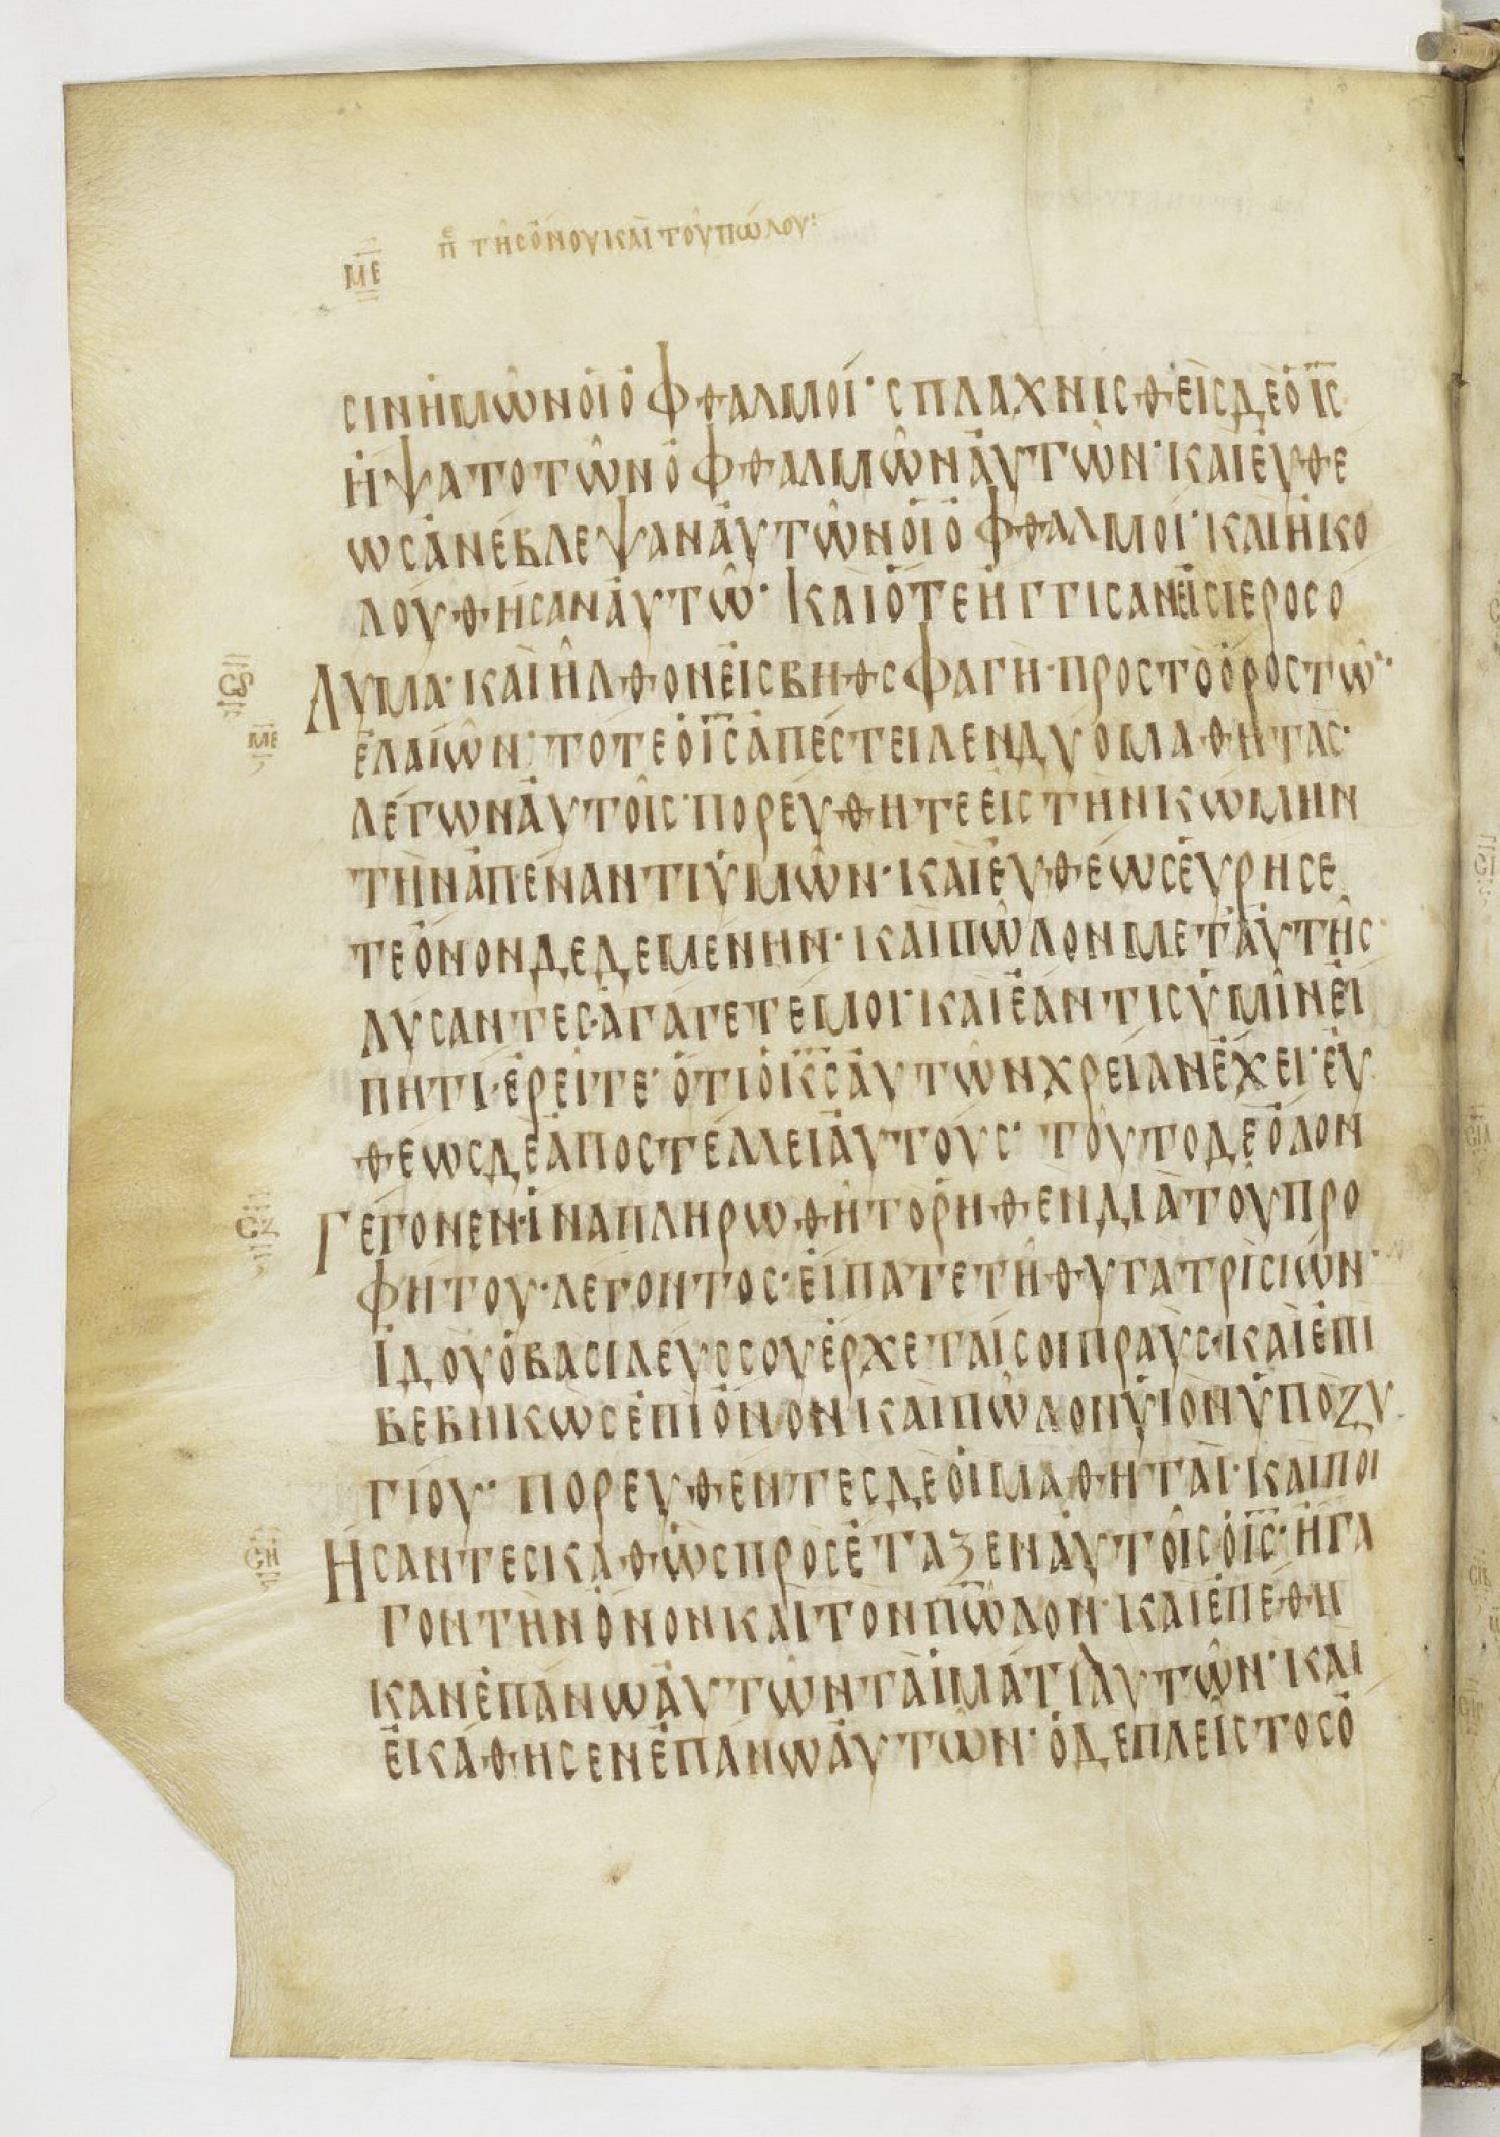 ΜΕ πε ΤΗ̂Σ ὌΝΟΥ ΚΑῚ ΤΟΥ͂ ΠΏΛΟΥ:
ϹΙΝ ἩΜΩ͂Ν ὉΙ ὈΦΘΑΛΜΟΊ· ϹΠΛΑΧΝΙϹΘΕῚϹ ΔῈ Ὁ ΙϹ
ἩΨΑΤΟ ΤΩ͂Ν ὈΦΘΑΛΜΩ͂Ν ἈΥΤΩ͂Ν· ΚΑῚ ἘΥΘΕ
ΩϹ ἈΝΈΒΛΕΨΑΝ ἈΥΤΩ͂Ν ὉΙ ὈΦΘΑΛΜΟΊ· ΚΑῚ ἨΚΟ
ΛΟΎΘΗϹΑΝ ἈΥΤΩ͂· ΚΑῚ ὍΤΕ ἨΓΓΙϹΑΝ ἘΙϹ ΙΕΡΟϹΟ
ΛΥΜΑ· ΚΑῚ ἨΛΘΟΝ ἘΙϹ ΒΗΘϹΦΑΓΗ· ΠΡΟϹ ΤῸ ὌΡΟϹ ΤΩ͂
ἘΛΑΙΩ͂Ν· ΤΟΤΕ Ὁ ΙϹ ἈΠΈϹΤΕΙΛΕΝ ΔΥΟ ΜΑΘΗΤᾺϹ·
ΛΈΓΩΝ ἈΥΤΟΙ͂Ϲ· ΠΟΡΕΎΘΗΤΕ ἘΙϹ ΤῊΝ ΚΏΜΗΝ
ΤῊΝ ἈΠΈΝΑΝΤΙ ὙΜΩ͂Ν· ΚΑῚ ἘΥΘΈΩϹ ἙΥΡΗϹΕ
ΤΕ ὌΝΟΝ ΔΕΔΕΜΕΝΗΝ· ΚΑῚ ΠΩ͂ΛΟΝ ΜΕΤ ἈΥΤΗ͂Ϲ
ΛΥϹΑΝΤΕϹ· ἈΓΆΓΕΤΕ ΜΟΙ· ΚΑῚ ἘΆΝ ΤΙϹ ὙΜΙ͂Ν ἘΙ
ΠΗ ΤΙ· ἘΡΕΙ͂ΤΕ· ὍΤΙ Ὁ ΚϹ ἈΥΤΩ͂Ν ΧΡΕΙΑΝ ἜΧΕΙ· ἘΥ
ΘΕΩϹ ΔῈ ἈΠΟϹΤΕΛΛΕΙ ἈΥΤΟΥϹ· ΤΟΥ͂ΤΟ ΔῈ ὍΛΟΝ
ΓΕΓΟΝΕΝ· ἹΝΑ ΠΛΗΡΩΘΗ͂ ΤῸ ῬΗΘΕΝ ΔΙᾺ ΤΟΥ ΠΡΟ
ΦΗΤΟΥ· ΛΕΓΟΝΤΟϹ· ἘΙΠΑΤΕ ΤΗ͂ ΘΥΓΑΤΡῚ ϹΙΏΝ·
ἸΔΟΥ Ὁ ΒΑϹΙΛΕΥϹ ϹΟΥ ἘΡΧΕΤΑΊ ϹΟΙ ΠΡΑΥϹ· ΚΑῚ ἘΠΙ
ΒΕΒΗΚΩϹ ἘΠῚ ὌΝΟΝ ΚΑῚ ΠΩ͂ΛΟΝ ὙΙΟΝ ὙΠΟΖΥ
ΓΙΟΥ· ΠΟΡΕΥΘΕΝΤΕϹ ΔῈ ὉΙ ΜΑΘΗΤΑΊ· ΚΑῚ ΠΟΙ
ΗϹΑΝΤΕϹ ΚΑΘΩϹ ΠΡΟϹΈΤΑΞΕΝ ἈΥΤΟΙ͂Ϲ Ὁ ΙϹ· ἨΓΑ
ΓΟΝ ΤῊΝ ὌΝΟΝ ΚΑῚ ΤΟΝ ΠΩ͂ΛΟΝ· ΚΑῚ ἘΠΕΘΗ
ΚΑΝ ἘΠΆΝΩ ἈΥΤΩ͂Ν ΤᾺ ἹΜΆΤΙΑ ἈΥΤΩ͂Ν· ΚΑΙ
ἘΚΆΘΗϹΕΝ ἘΠΆΝΩ ἈΥΤΩ͂Ν· Ὁ ΔΕ ΠΛΕΙ͂ϹΤΟϹ Ὄ
Ϲϛ
ΜΕ
ϹΖ
ϹΗ